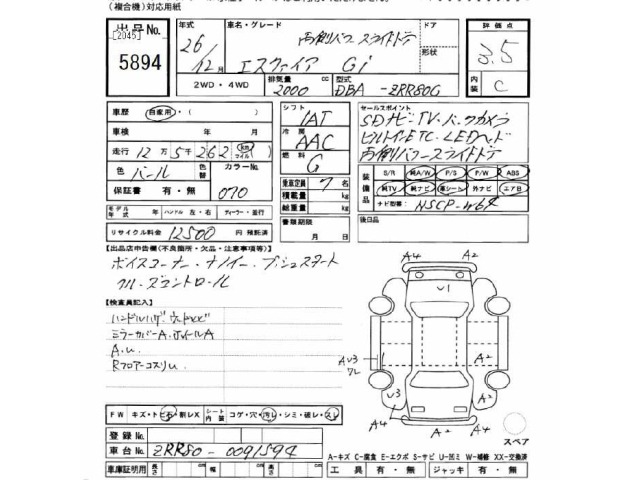 (複合機)対応用紙
出品No. [2045] 5894
年式 26年 12月
車名・グレード 両側パワースライドドア エスクァイア Gi
ドア 形状
評価点 3.5
内装 C
2WD・4WD
排気量 2000 cc
型式 DBA-ZRR80G
車歴 自家用・( )
車検 年 月
走行 12万5千262 km マイル
色 パール 色替 カラーNo. 070
保証書 有・無
モデル年式 年 ハンドル 左・右 ディーラー・並行
リサイクル料金 12500 円 預託済
シフト IAT
冷房 AAC
燃料 G
乗車定員 7 名
積載量 kg
総重量 kg
書類期限 月 日
セールスポイント
SDナビ・TV・バックカメラ
ビルトインETC・LEDヘッド
両側パワースライドドア
装備品 S/R 純A/W P/S P/W ABS
純TV 純ナビ 革シート 外ナビ エアB
ナビ型番( NSCP-W64
後日品
【出品店申告欄(不良箇所・欠品・注意事項等)】
ボイスコーナー・ナノイー・プッシュスタート
クルーズコントロール
【検査員記入】
ハンドルハゲ・ウッドキズ
ミラーカバーA・ホイールA
A.U.
RフロアーコスリU.
A4 A2
U1
AU3 ワレ
A2
A2
U3
A4 A2 A4
スペア
FW キズ・トビ石・割レX シート内装 コゲ・穴・汚レ・シミ・破レ・スレ
登録No.
車台No. ZRR80-0091594
車庫証明用 長さ cm 幅 cm 高さ cm
A-キズ C-腐食 E-エクボ S-サビ U-凹ミ W-補修 XX-交換済
工具 有・無 ジャッキ 有・無